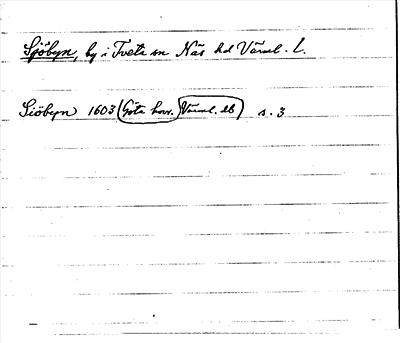 Sjöbyn, by i Tveta sn Näs hd Värml. l.
Siöbyn 1603 (Göta hovr. (Värml. 26) s. 3